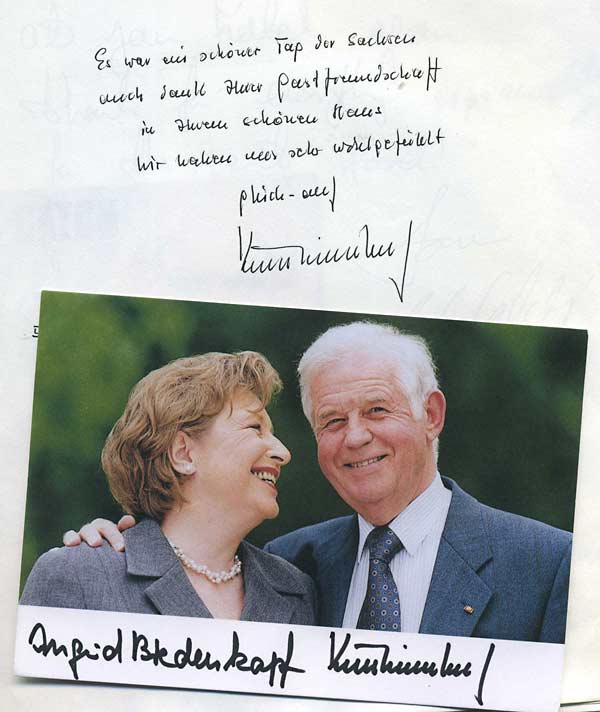 Es war ein schöner Tag der Sachsen
auch dank Ihrer Gastfreundschaft
in Ihrem schönen Haus
Wir haben uns sehr wohlgefühlt
glück-auf
Ingrid Biedenkopf